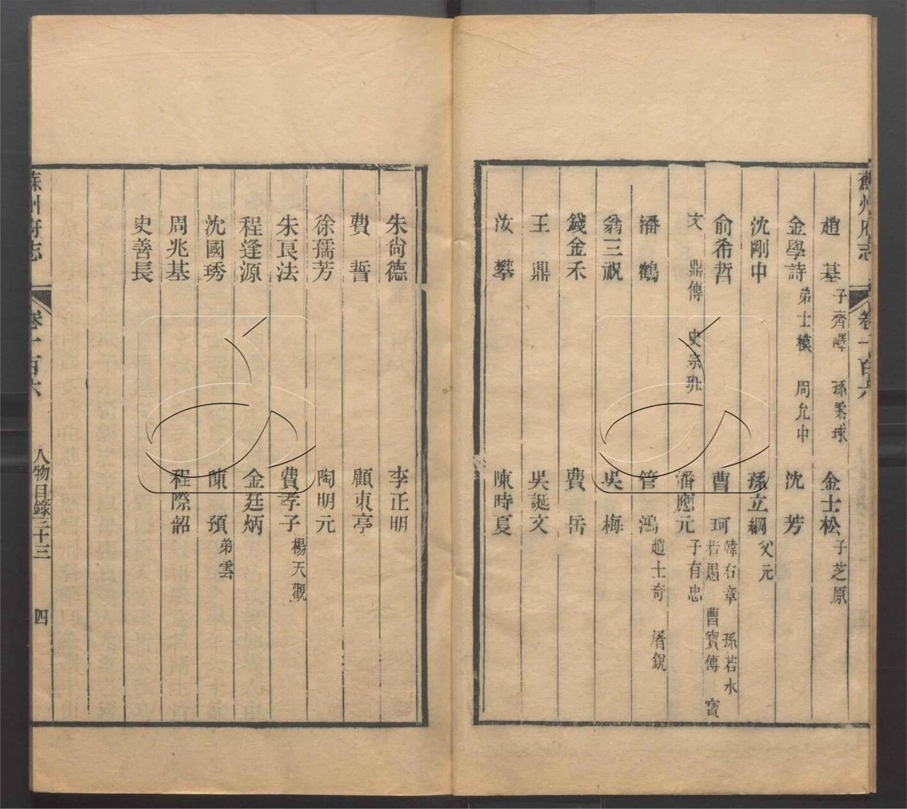 蘇州府志 卷一百六
趙基 子齊嶧 孫 球 金士松 子芝原
金學詩 弟士模 周允中 沈芳
沈剛中 孫立綱 父元
俞希哲 曹珂 韓右章 孫若水 若愚 曹寶傳 寶
文鼎傳 史宗 潘應元 子有忠
潘鶴 管鴻 趙士奇 屠銳
翁三祝 吳梅
錢金禾 費岳
王鼎 吳誕文
汝攀 陳時夏
朱尙德 李正明
費誓 顧東亭
徐孺芳 陶明元
朱良法 費孝子 楊天觀
程逢源 金廷炳
沈國琇 陳預 弟雲
周兆基 程際韶
史善長
蘇州府志 卷一百六 人物目錄三十三 四